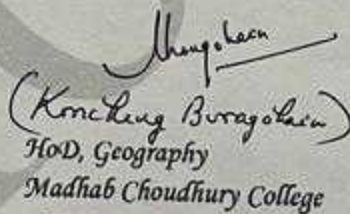 (Koncheng Buragohain)
HoD, Geography
Madhab Choudhury College